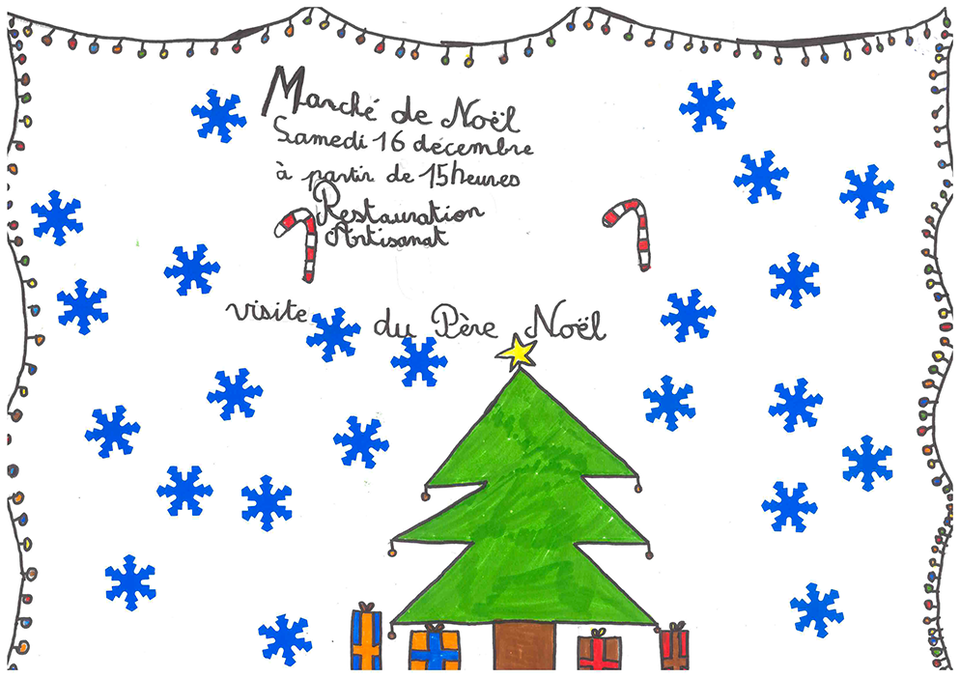 Marché de Noël
Samedi 16 décembre
à partir de 15heures
Restauration
Artisanat
visite du Père Noël